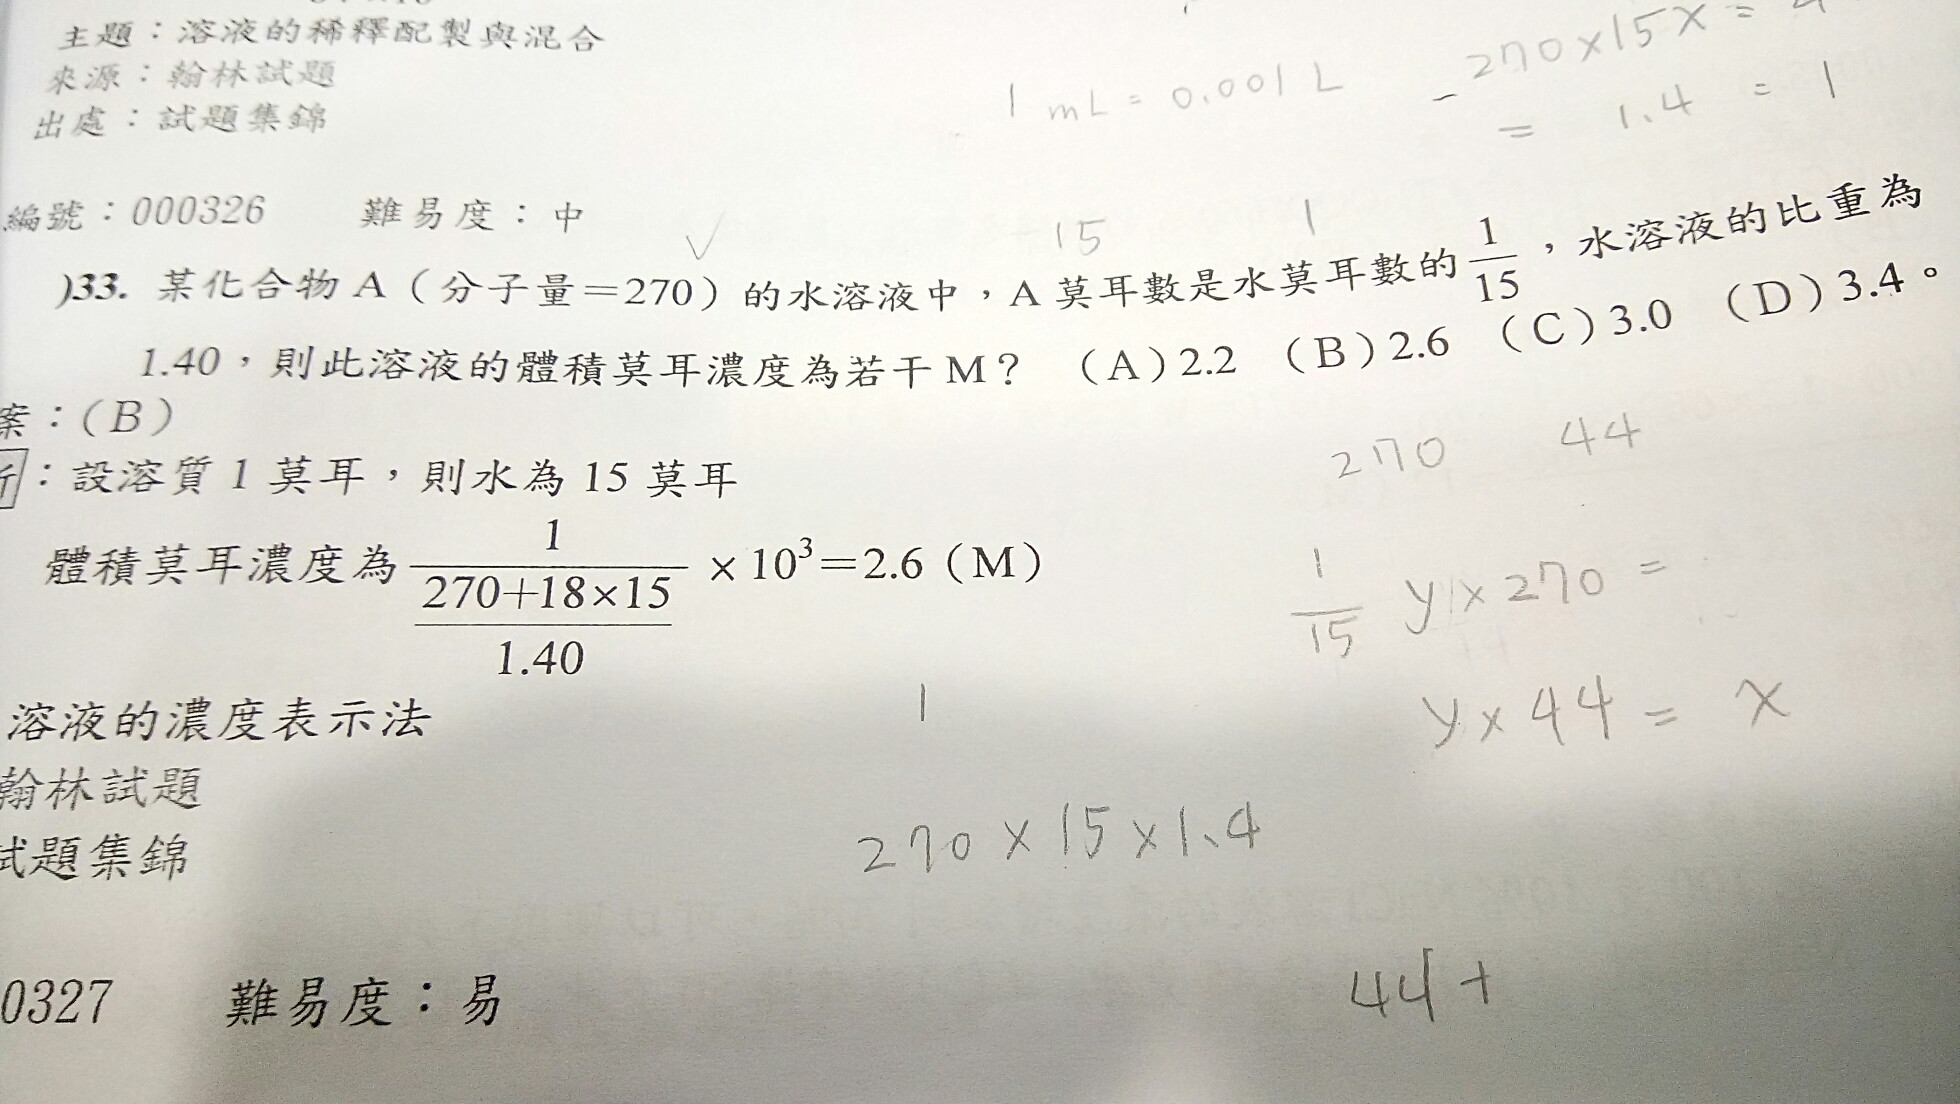 主題：溶液的稀釋配製與混合
來源：翰林試題
出處：試題集錦
1 mL = 0.001 L
270×15x =
= 1.4 = 1
編號：000326 難易度：中
15 1
)33. 某化合物 A（分子量＝270）的水溶液中，A 莫耳數是水莫耳數的 1/15，水溶液的比重為
1.40，則此溶液的體積莫耳濃度為若干 M？ （A）2.2 （B）2.6 （C）3.0 （D）3.4。
案：(B)
：設溶質 1 莫耳，則水為 15 莫耳
270 44
體積莫耳濃度為 1/((270+18×15)/1.40) ×10³＝2.6（M）
1/15 y×270 =
y×44 = x
溶液的濃度表示法
1
翰林試題
270×15×1.4
試題集錦
44+
0327 難易度：易